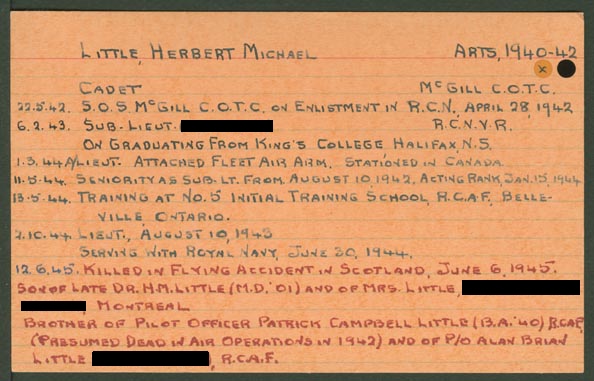 LITTLE, HERBERT MICHAEL ARTS, 1940-42
x
CADET MCGILL C.O.T.C.
22.5.42. S.O.S. MCGILL C.O.T.C, ON ENLISTMENT IN R.C.N., APRIL 28, 1942
6.2.43. SUB-LIEUT. R.C.N.V.R.
ON GRADUATING FROM KING'S COLLEGE HALIFAX, N.S.
1.3.44 A/LIEUT. ATTACHED FLEET AIR ARM. STATIONED IN CANADA
11.5.44. SENIORITY AS SUB-LT. FROM AUGUST 10, 1942, ACTING RANK, JAN. 15, 1944
13.5.44. TRAINING AT NO. 5 INITIAL TRAINING SCHOOL, R.C.A.F., BELLE-
VILLE ONTARIO.
2.10.44. LIEUT., AUGUST 10, 1943
SERVING WITH ROYAL NAVY, JUNE 30, 1944.
12.6.45. KILLED IN FLYING ACCIDENT IN SCOTLAND, JUNE 6, 1945.
SON OF LATE DR. H.M. LITTLE (M.D. '01) AND OF MRS. LITTLE,
, MONTREAL
BROTHER OF PILOT OFFICER PATRICK CAMPBELL LITTLE (B.A. '40) R.C.A.F,
(PRESUMED DEAD IN AIR OPERATIONS IN 1942) AND OF P/O ALAN BRIAN
LITTLE , R.C.A.F.